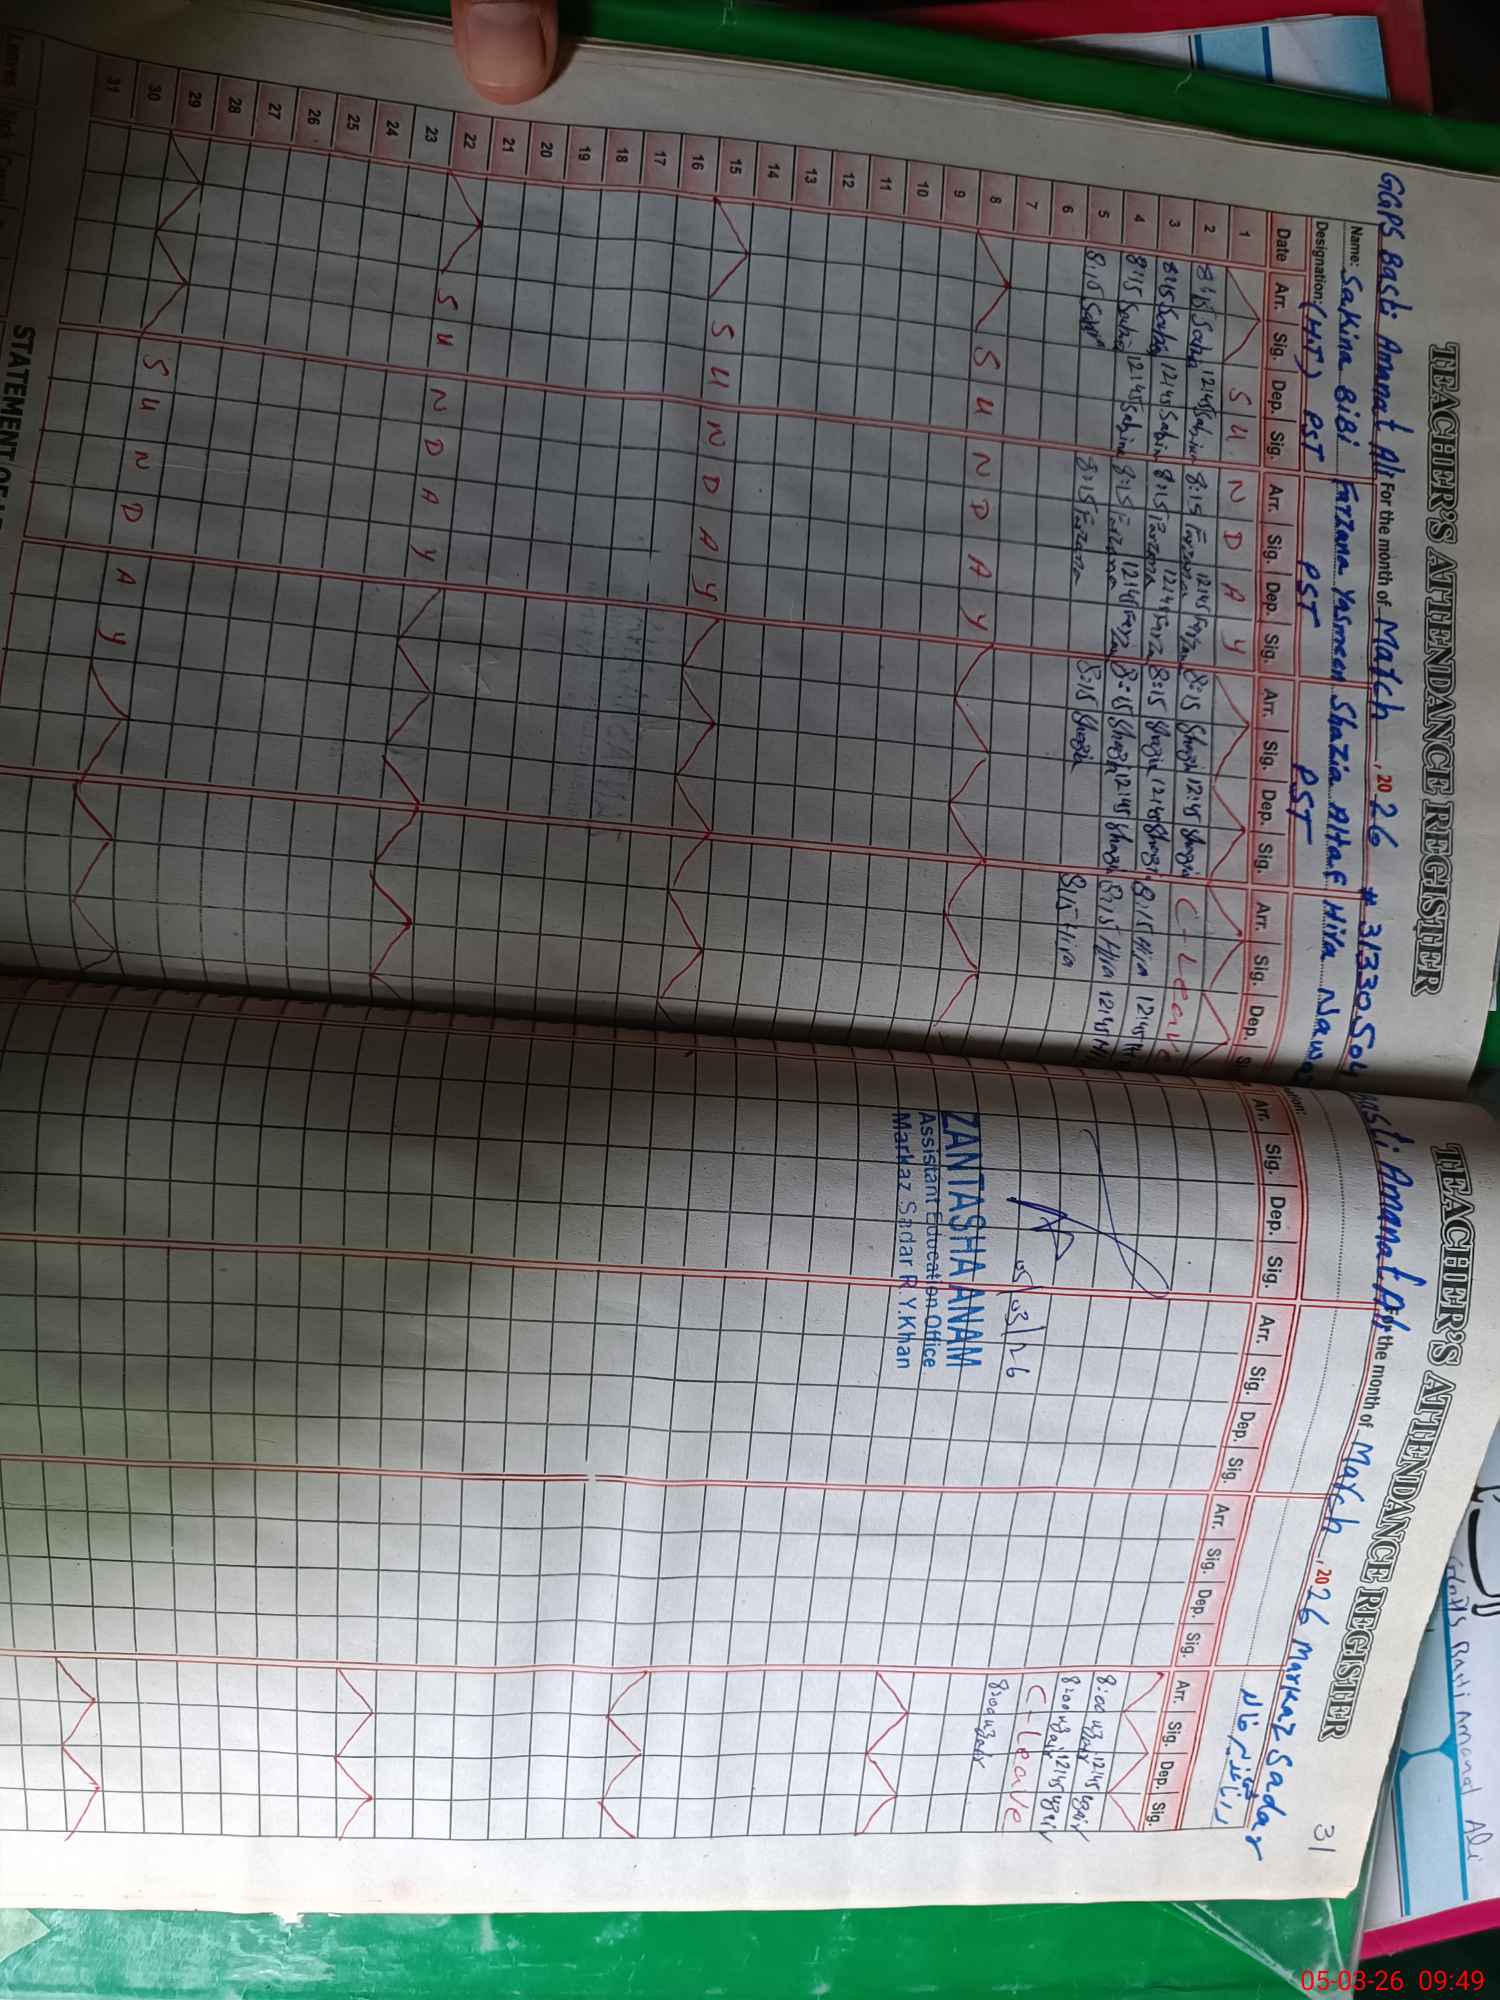 TEACHER'S ATTENDANCE REGISTER
GGPS Basti Amanat Ali For the month of March, 2026 # 31330504
Name: Sakina BiBi Farzana Yasmeen Shazia Altaf Hira Nawaz
Designation: (H.T) PST PST PST
Date Arr. Sig. Dep. Sig. Arr. Sig. Dep. Sig. Arr. Sig. Dep. Sig. Arr. Sig. Dep.
1 S U N D A Y
2 8:15 12:45 8:15 Farzana 12:45 8:15 Shazia 12:45 Shazia C-Leave
3 8:15 12:45 8:15 Farzana 12:45 8:15 Shazia 12:45 Shazia 8:15 Hira 12:45
4 8:15 12:45 8:15 Farzana 12:45 8:15 Shazia 12:45 Shazia 8:15 Hira 12:45
5 8:15 8:15 Farzana 8:15 Shazia 8:15 Hira
6
7
8 S U N D A Y
9
10
11
12
13
14
15 S U N D A Y
16
17
18
19
20
21
22 S U N D A Y
23
24
25
26
27
28
29 S U N D A Y
30
31
STATEMENT OF
TEACHER'S ATTENDANCE REGISTER
31
Basti Amanat Ali For the month of March, 2026 Markaz Sadar
Arr. Sig. Dep. Sig. Arr. Sig. Dep. Sig. Arr. Sig. Dep. Sig. Arr. Sig. Dep. Sig.
8:00 12:45
8:00 12:45
C-Leave
8:00
05/03/26
ZANTASHA ANAM
Assistant Education Office
Markaz Sadar R.Y.Khan
Basti Amanat Ali
05-03-26 09:49